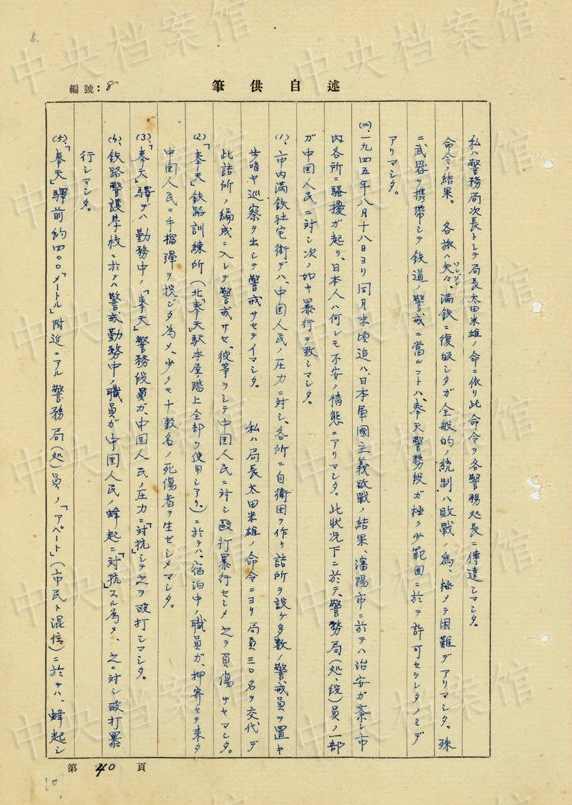 編號：8
筆供自述
私ハ警務局次長トシテ局長太田米雄ノ命ニ依リ此命令ヲ各警務処長ニ傳達シマシタ。
命令ノ結果。各旅ハ夫々、満鉄ニ復皈シタガ全般的ノ統制ハ敗戦ノ為メ極メテ困難デアリマシタ。殊
ニ武器ヲ携帯シテ鉄道ノ警戒ニ當ルコトハ、奉天警務段ガ極ク少範囲ニ於テ許可セラレタノミデ
アリマシタ。
(二)、一九四五年八月十八日ヨリ同月末頃迄ハ、日本軍國主義敗戦ノ結果、瀋陽市ニ於テハ治安ガ紊レ市
内各所ニ騒擾ガ起リ、日本人ハ何レモ不安ノ情態ニアリマシタ。此状況下ニ於テ、警務局(処、段)員ノ一部
ガ中国人民ニ対シ次ノ如キ暴行ヲ致シマシタ。
(1)、市内満鉄社宅街デハ、中国人民ノ圧力ニ対シ、各所ニ自衛団ヲ作リ詰所ヲ設ケ多数ノ警戒員ヲ置キ
歩哨ヤ巡察ヲ出シテ警戒サセテイマシタ。私ハ局長太田米雄ノ命令ニヨリ局員三〇名ヲ交代デ
此詰所ノ編成ニ入レテ警戒サセ、彼等ヲシテ中国人民ニ対シ毆打暴行セシメ之ヲ負傷サセマシタ。
(2)「奉天」鉄路訓練所(北奉天駅本屋階上全部ヲ使用シテイタ)ニ於テハ、宿泊中ノ職員ガ、押寄セテ来タ
中国人民ニ手榴弾ヲ投ジタ為メ、少クモ十数名ノ死傷者ヲ生ゼシメマシタ。
(3)「奉天」驛デハ勤務中ノ「奉天」警務段員ガ、中国人民ノ圧力ニ「対抗」シテ之ヲ毆打シマシタ。
(4)、鉄路警護学校ニ於テハ警戒勤務中ノ職員ガ中国人民ノ蜂起ニ「対抗」スル為メ、之ニ対シ毆打暴
行シマシタ。
(5)、「奉天」驛前約四〇〇「メートル」附近ニアル警務局(処)員ノ「アパート」(市民ト混住)ニ於テハ、蜂起シ
第 40 頁
中央档案馆